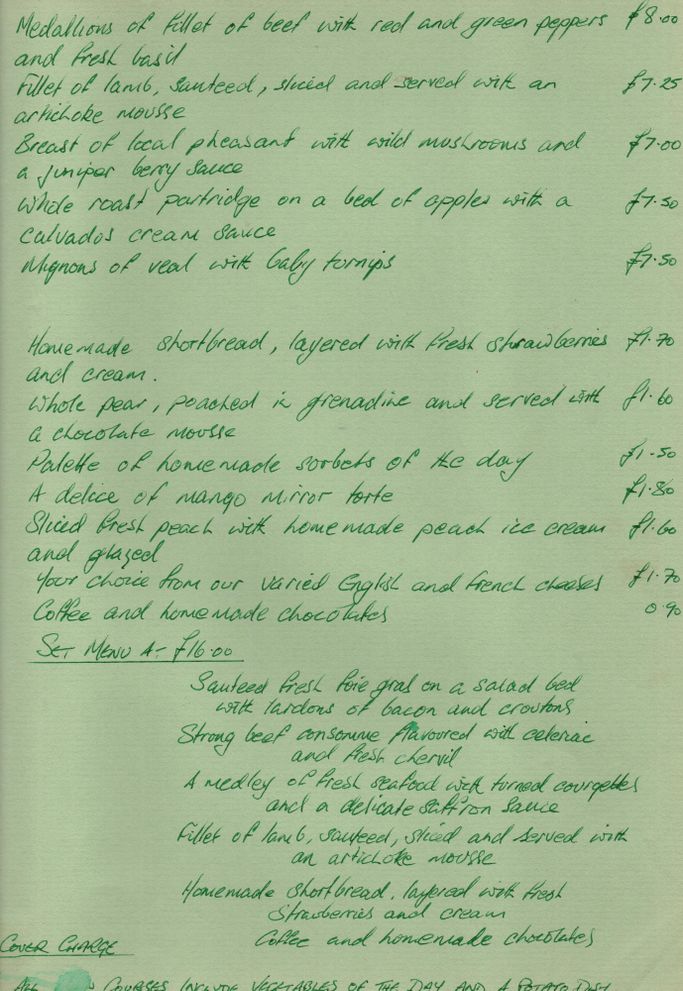 Medallions of fillet of beef with red and green peppers £8.00
and fresh basil
Fillet of lamb, sauteed, sliced and served with an £7.25
artichoke mousse
Breast of local pheasant with wild mushrooms and £7.00
a juniper berry sauce
Whole roast partridge on a bed of apples with a £7.50
calvados cream sauce
Mignons of veal with baby turnips £7.50
Homemade shortbread, layered with fresh strawberries £1.70
and cream.
Whole pear, poached in grenadine and served with £1.60
a chocolate mousse
Palette of homemade sorbets of the day £1.50
A delice of mango mirror torte £1.80
Sliced fresh peach with homemade peach ice cream £1.60
and glazed
Your choice from our varied English and French cheeses £1.70
Coffee and homemade chocolates 0.90
SET MENU A - £16.00
Sauteed fresh foie gras on a salad bed
with lardons of bacon and croutons
Strong beef consomme flavoured with celeriac
and fresh chervil
A medley of fresh seafood with turned courgettes
and a delicate saffron sauce
Fillet of lamb, sauteed, sliced and served with
an artichoke mousse
Homemade shortbread, layered with fresh
strawberries and cream
Coffee and homemade chocolates
COVER CHARGE
ALL COURSES INCLUDE VEGETABLES OF THE DAY AND A POTATO DISH